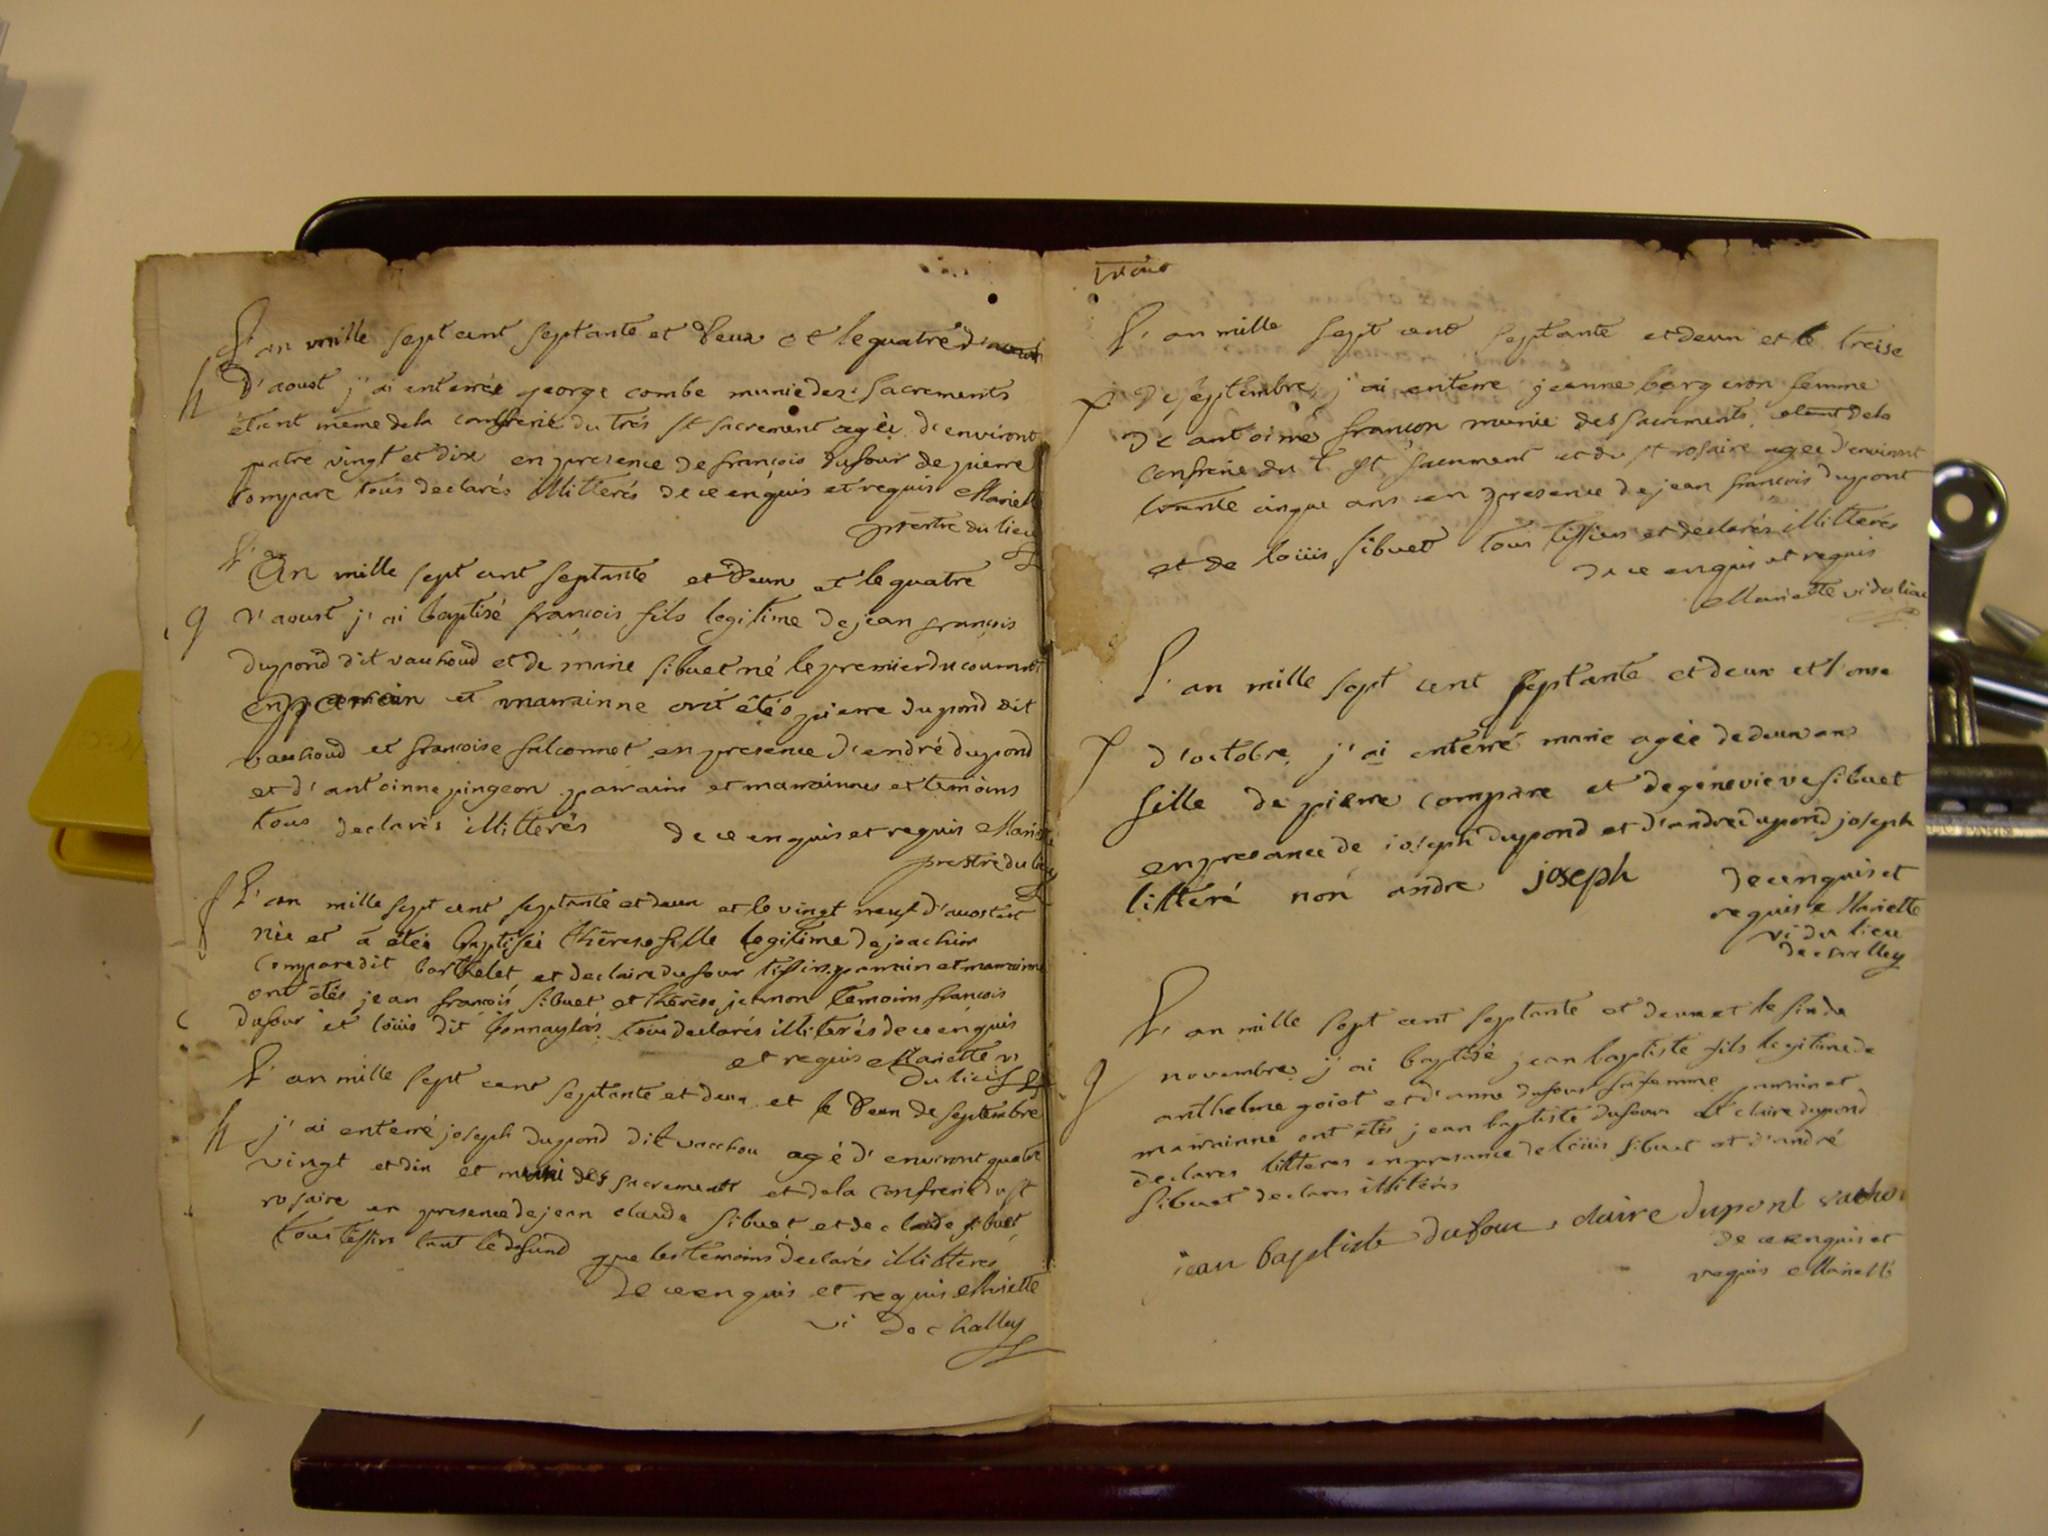 L'an mille sept cent septante et deux et le quatre d'aoust
h d'aoust j'ai enterrée george combe munie des sacrements
étient même de la confrerie du trés st sacrement agèe d'environt
quatre vingt et dix en presence de françois dufour de pierre
compare tous declarés illiterés de ce enquis et requis Mariette
prestre du lieu
L'An mille sept cent septante et deux et le quatre
9 d'aoust j'ai baptisé françois fils legitime de jean françois
dupond dit vauhoud et de marie sibuet né le premier du courant
parrain et marrainne ont étés pierre dupond dit
vauhoud et françoise falconnet en presence d'endré dupond
et d'antoinne pingeon parrains et marrainnes et temoins
tous declarés illiterés de ce enquis et requis Mariette
prestre du lieu
L'an mille sept cent septante et deux et le vingt neuf d'auost est
née et a étée baptisée thérese fille legitime de joachim
compare dit barthelet et de claire dufour tissins parrain et marrainne
ont étés jean françois sibuet et thérèse jeannon temoins françois
dufour et loüis dit tous declarés illiterés de ce enquis
et requis Mariette vi
du lieu
L'an mille sept cent septante et deux et le deux de septembre
h j'ai enterré joseph dupond dit vacchou agé d'environt quatre
vingt et dix et muni des sacrements et de la confrerie du st
rosaire en presence de jean claude sibuet et de claude sibuet
tous tissins tant le defund que les temoins declarés illitteres
De ce enquis et requis Mariette
vi De challey
trois
L'an mille sept cent septante et deux et le treise
De septembre j'ai enterre jeanne bergeron femme
de antoine françon munie des sacrements etant de la
confrerie du t st sacrement et du st rosaire agee d'environt
trente cinque ans en presence de jean françois dupont
et de loüis sibuet tous tissiers et declarés illitterés
de ce enquis et requis
Mariette vi du lieu
L'an mille sept cent septante et deux et l'onse
d'octobre j'ai enterré marie agée de deux ans
fille de pierre compare et de genevieve sibuet
en presance de joseph dupond et d'andre dupond joseph
litteré non andre joseph de ce enquis et
requis Mariette
vi du lieu
de challey
L'an mille sept cent septante et deux et le six de
9 novembre j'ai baptisé jean baptiste fils legitime de
anthelme goiot et d'anne dufour sa femme parrain et
marrainne ont étés jean baptiste dufour et claire dupond
declares litteres en presance de loüis sibuet et d'andré
sibuet declares illitérés
jean baptiste dufour claire dupont vachou
de ce enquis et
requis Mariette